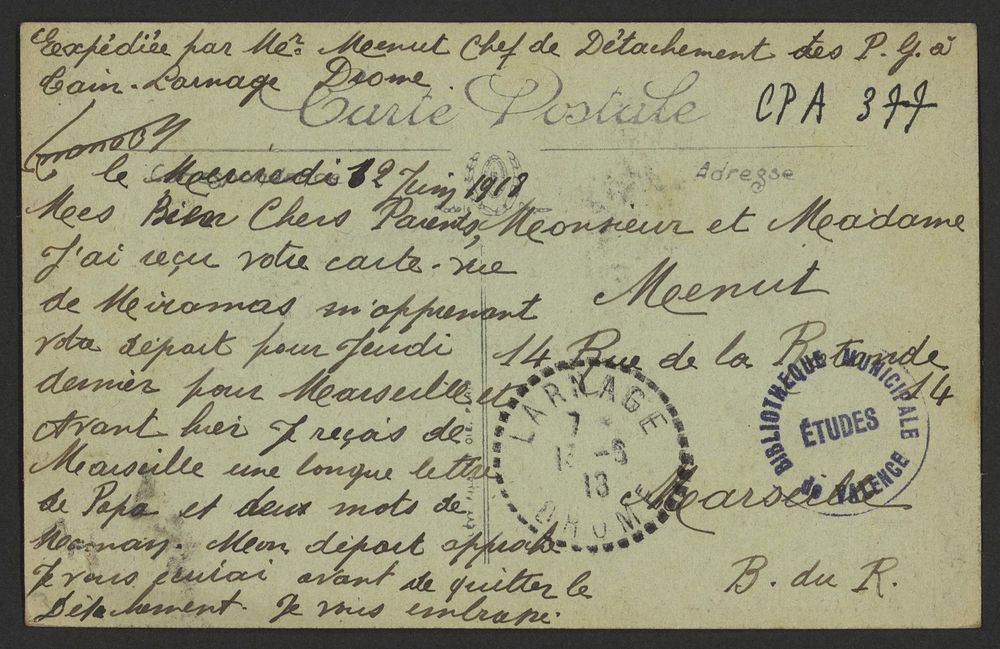 Expédiée par Mer Menut Chef de Détachement des P. G. à
Tain-Larnage Drome
Carte Postale
CPA 377
Adresse
le Mercredi 12 Juin 1918
Mes Bien Chers Parents,
J'ai reçu votre carte-vue
de Miramas m'apprenant
votre départ pour Jeudi
dernier pour Marseille et
Avant hier J reçois de
Marseille une longue lettre
de Papa et deux mots de
Maman. Mon départ approche
Je vous écrirai avant de quitter le
Détachement. Je vous embrasse.
Monsieur et Madame
Menut
14 Rue de la Rotonde
14
Marseille
B. du R.
LARNAGE
DROME
BIBLIOTHEQUE MUNICIPALE
ÉTUDES
de VALENCE